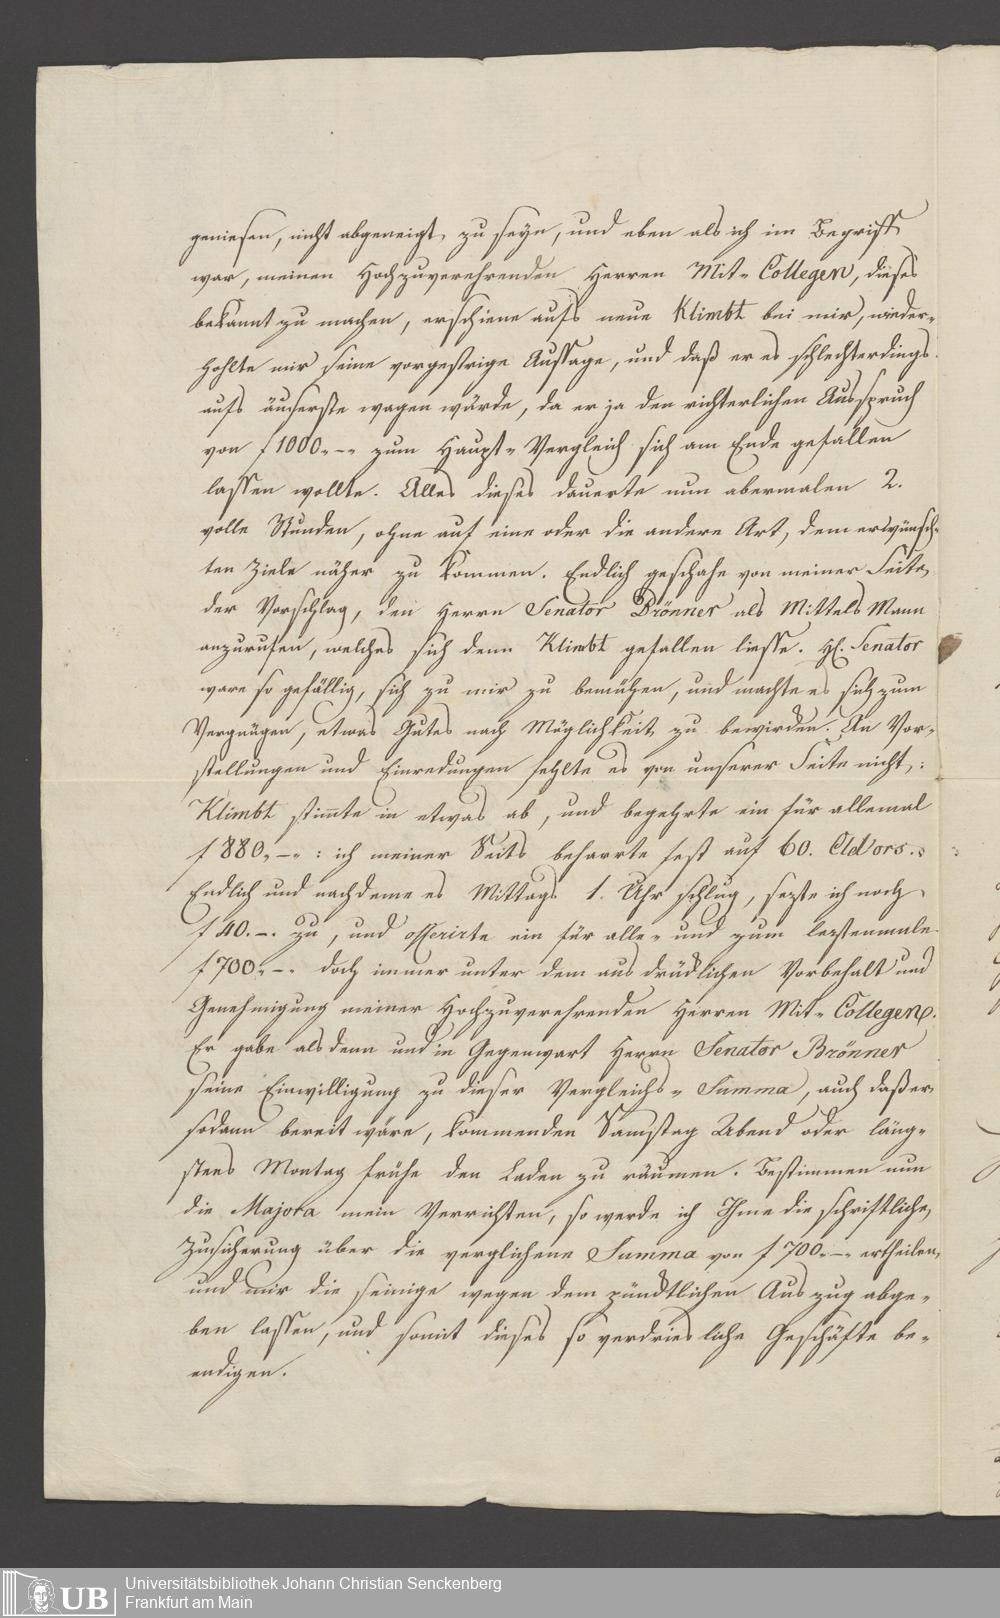 geniesen, nicht abgeneigt zu seyn, und eben als ich im Begriff
war, meinen Hochzuverehrenden Herren Mit-Collegen, dieses
bekannt zu machen, erschiene aufs neue Klimbt bei mir, wieder-
hohlte mir seine vorgestrige Aussage, und daß er es schlechterdings
aufs äuserste wagen würde, da er ja den richterlichen Ausspruch
von f 1000.-.- zum Haupt-Vergleich sich am Ende gefallen
lassen wollte. Alles dieses dauerte nun abermalen 2.
volle Stunden, ohne auf eine oder die andere Art, dem erwünsch-
ten Ziele näher zu kommen. Endlich geschahe von meiner Seite,
der Vorschlag, den Herrn Senator Brönner als Mittels Mann
anzurufen, welches sich denn Klimbt gefallen liesse. H. Senator
ware so gefällig, sich zu mir zu bemühen, und machte es sich zum
Vergnügen, etwas Gutes nach Möglichkeit zu bewirken. An Vor-
stellungen und Einredungen fehlte es von unserer Seite nicht,:
Klimbt stimmte in etwas ab, und begehrte ein für allemal
f 880.-.-: ich meiner Seits beharrte fest auf 60. Cldors.:
Endlich und nachdeme es Mittags 1. Uhr schlug, sezte ich noch
f 40.-. zu, und offerirte ein für alle- und zum lezstenmale
f 700.-. doch immer unter dem ausdrücklichen Vorbehalt und
Genehmigung meiner Hochzuverehrenden Herren Mit-Collegen.
Er gabe alsdenn und in Gegenwart Herrn Senator Brönner
seine Einwilligung zu dieser Vergleichs-Summa, auch daß er
sodann bereit wäre, kommenden Samstag Abend oder läng-
stens Montag frühe den Laden zu räumen. Bestimmen nun
die Majora mein Verrichten, so werde ich Ihme die schriftliche
Zusicherung über die verglichene Summa von f 700.-.- ertheilen,
und mir die seinige wegen dem pünktlichen Auszug abge-
ben lassen, und somit dieses so verdriesliche Geschäfte be-
endigen.
UB
Universitätsbibliothek Johann Christian Senckenberg
Frankfurt am Main